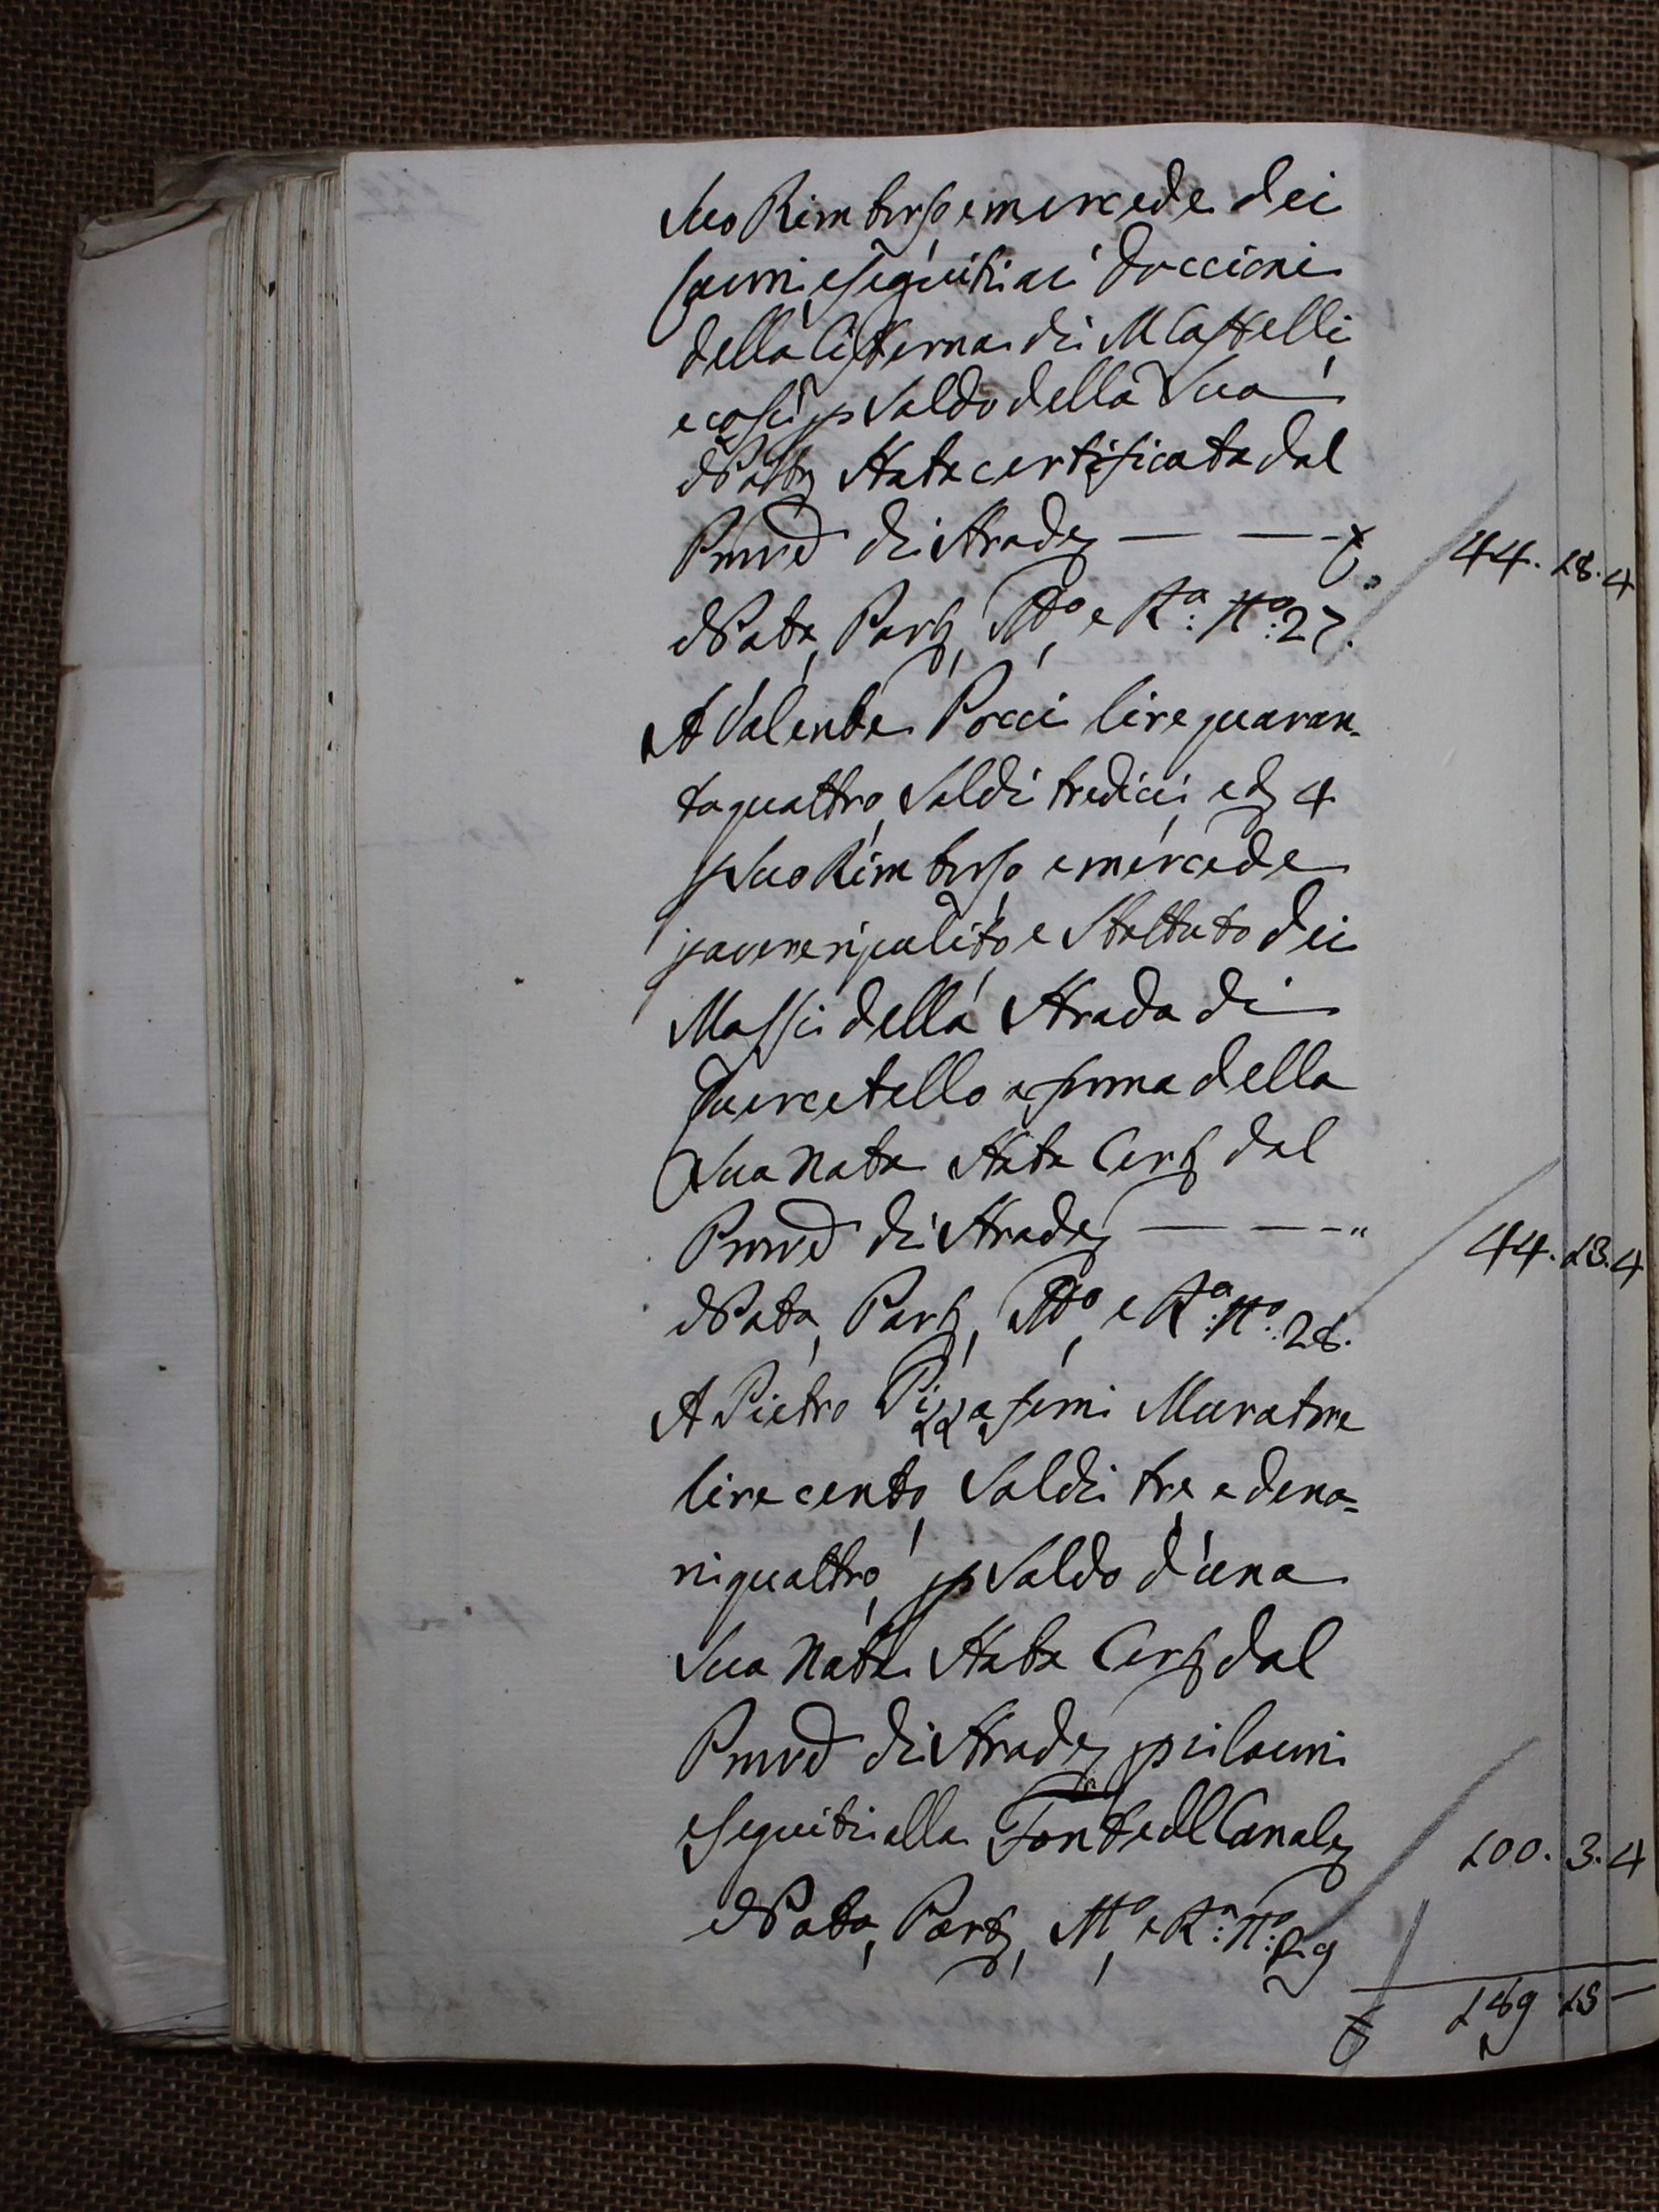 Suo Rimborso e mercede dei
lavori eseguiti ai doccioni
della Cisterna di M Castelli,
e così p Saldo della Sua
Nota Stata certificata dal
Provd di Strade — — £ 44. 18. 4
Nota, Part, Mto, e Ra: No: 27.
A Valente Pocci lire quaran-
taquattro, Soldi tredici, e d 4
p Suo Rimborso e mercede
p avere ripulito e Sbattuto dei
Massi della Strada di
Quercetello a forma della
Sua Nota Stata Cert dal
Provd di Strade — — " 44. 13. 4
Nota, Part, Mto, e Ra: No: 28.
A Pietro Pizzasemi Muratore
lire cento, Soldi tre, e dena=
ri quattro, p Saldo d'una
Sua Nota Stata Cert dal
Provd di Strade p i lavori
eseguiti alla Fonte del Canale 100. 3. 4
Nota, Part, Mto, e Ra: No: 29
£ 189 15 —